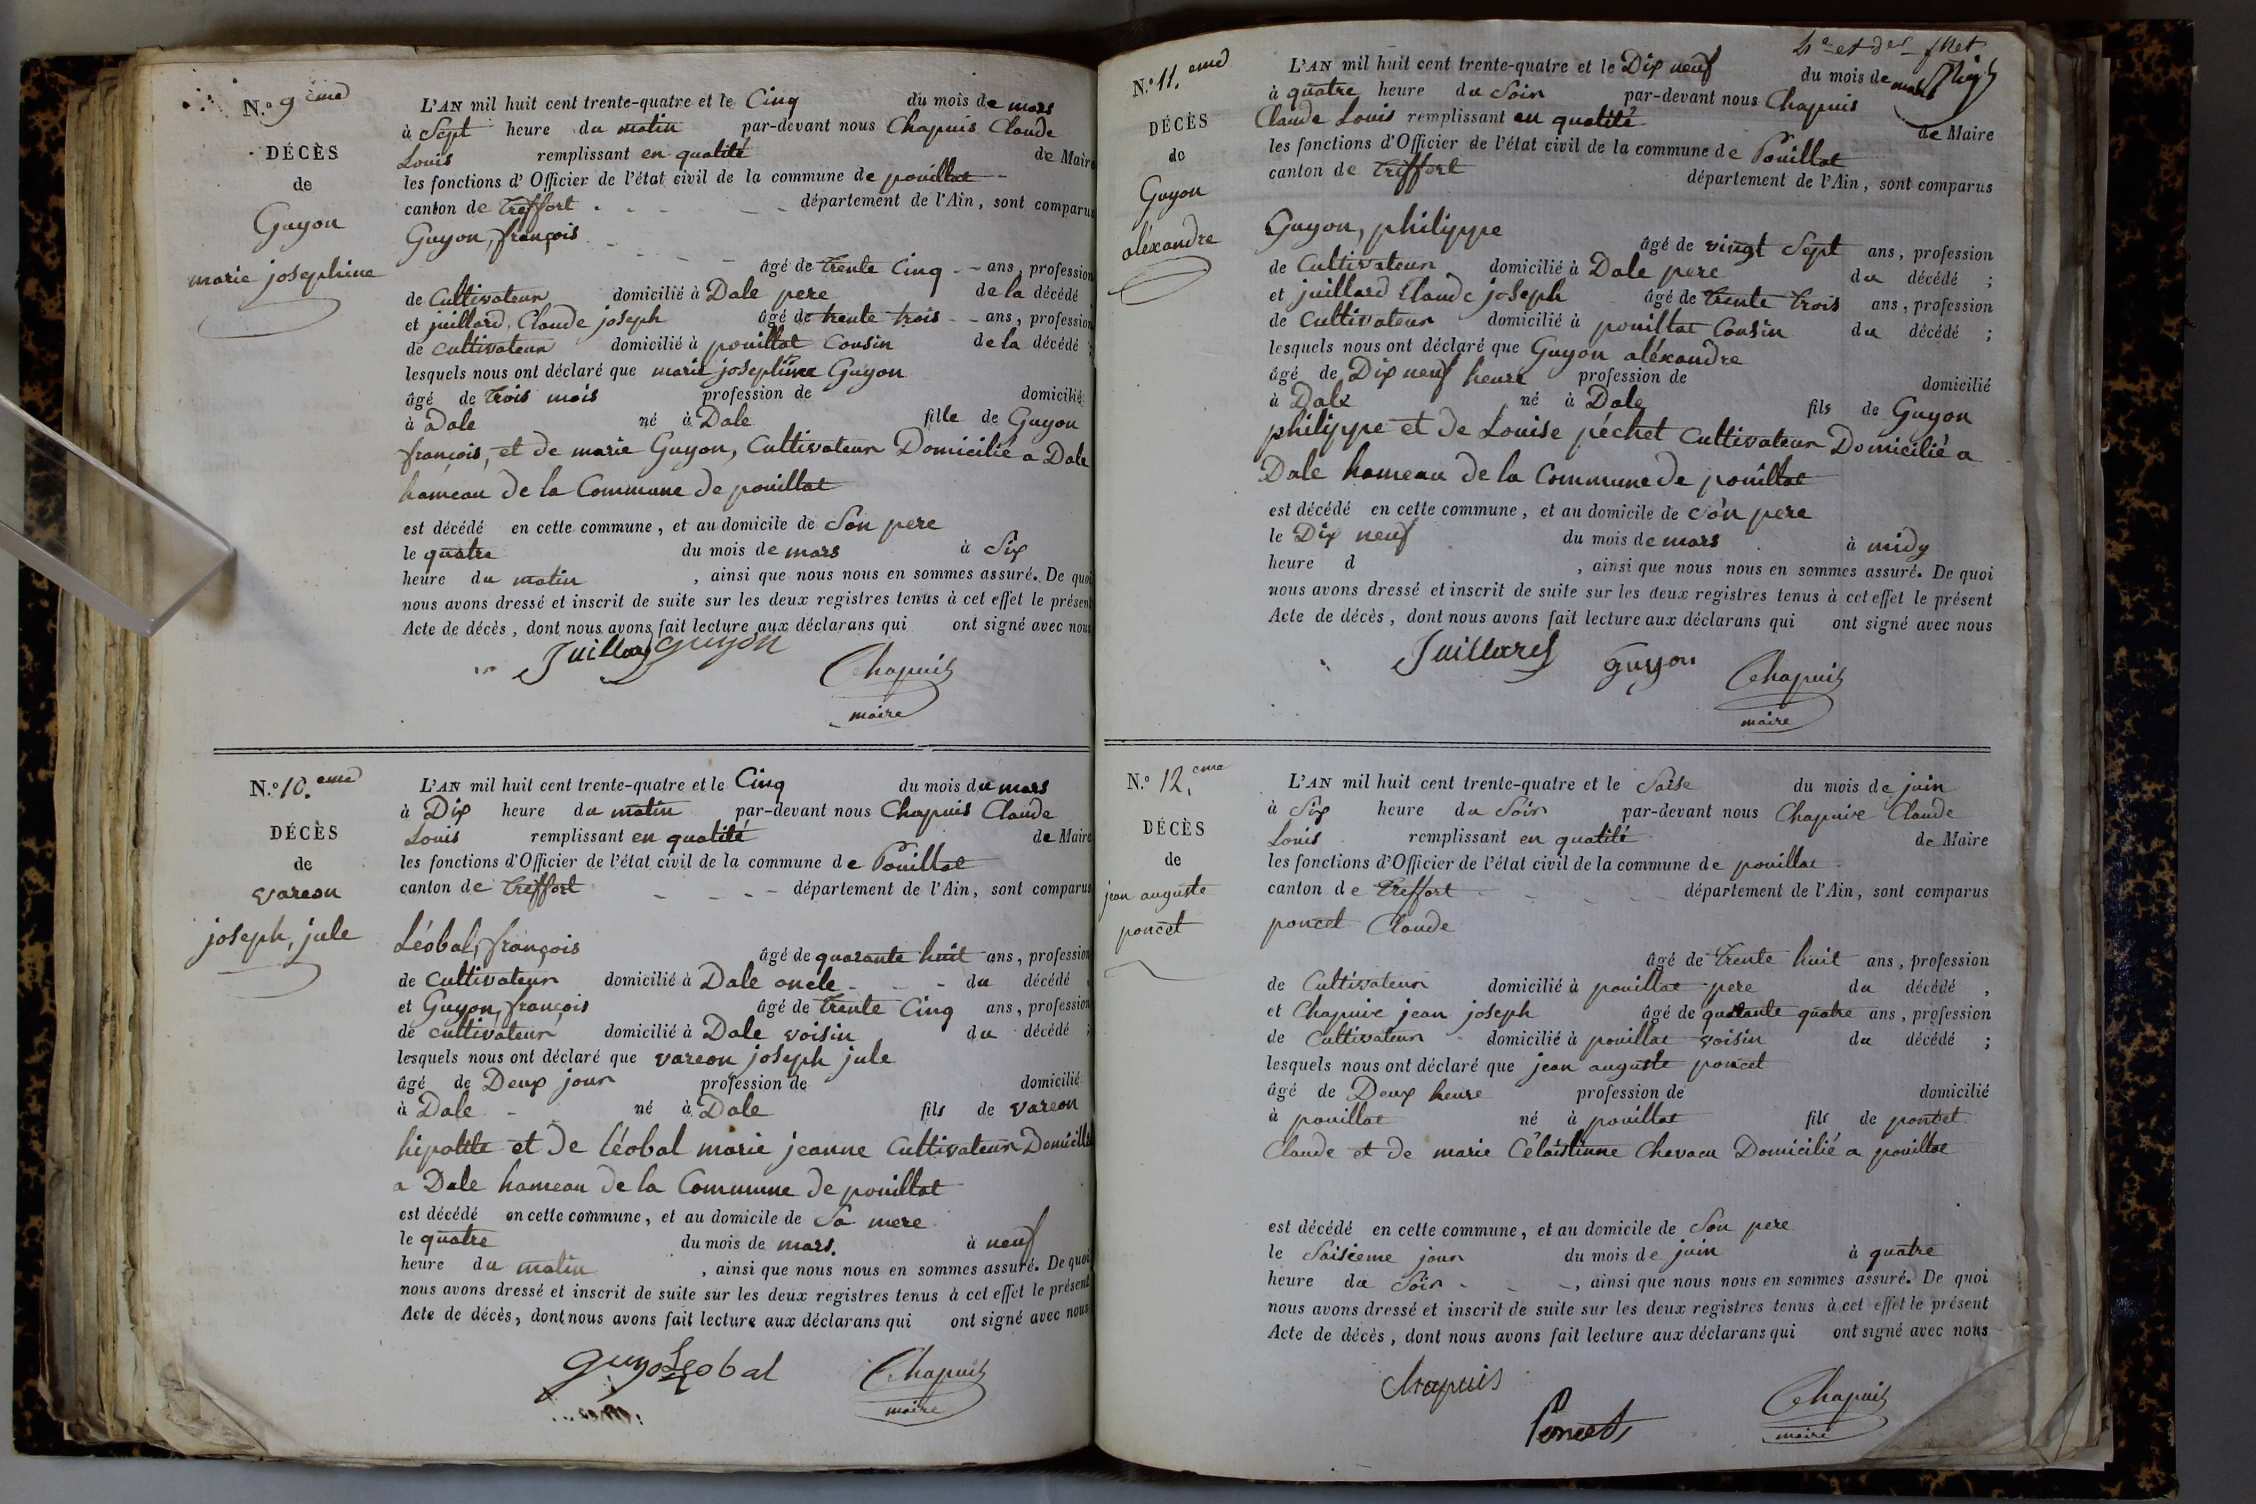 N.º 9 eme
DÉCÈS
de
Guyon
marie josephine
L'AN mil huit cent trente-quatre et le Cinq du mois de mars
à Sept heure du matin par-devant nous Chapuis Claude
Louis remplissant en qualité de Maire
les fonctions d'Officier de l'état civil de la commune de pouillat
canton de treffort département de l'Ain, sont comparus
Guyon, françois
âgé de trente Cinq ans, profession
de Cultivateur domicilié à Dale pere de la décédé
et juillard, Claude joseph âgé de trente trois ans, profession
de cultivateur domicilié à pouillat Cousin de la décédé ;
lesquels nous ont déclaré que marie josephine Guyon
âgé de trois mois profession de domicilié
à Dale né à Dale fille de Guyon
françois, et de marie Guyon, Cultivateur Domicilié a Dale
hameau de la Commune de pouillat
est décédé en cette commune, et au domicile de Son pere
le quatre du mois de mars à Six
heure du matin , ainsi que nous nous en sommes assuré. De quoi
nous avons dressé et inscrit de suite sur les deux registres tenus à cet effet le présent
Acte de décès, dont nous avons fait lecture aux déclarans qui ont signé avec nous
Juillard guyon Chapuis
maire
N.º 10. eme
DÉCÈS
de
vareon
joseph, jule
L'AN mil huit cent trente-quatre et le Cinq du mois du mars
à Dix heure du matin par-devant nous Chapuis Claude
Louis remplissant en qualité de Maire
les fonctions d'Officier de l'état civil de la commune de Pouillat
canton de treffort département de l'Ain, sont comparus
Léobal, françois
âgé de quarante huit ans, profession
de Cultivateur domicilié à Dale oncle du décédé
et Guyon, françois âgé de trente Cinq ans, profession
de cultivateur domicilié à Dale voisin du décédé ;
lesquels nous ont déclaré que vareon joseph jule
âgé de Deux jour profession de domicilié
à Dale né à Dale fils de vareon
hipolite et de Léobal marie jeanne Cultivateur Domicilié
a Dale hameau de la Commune de pouillat
est décédé en cette commune, et au domicile de Sa mere
le quatre du mois de mars. à neuf
heure du matin , ainsi que nous nous en sommes assuré. De quoi
nous avons dressé et inscrit de suite sur les deux registres tenus à cet effet le présent
Acte de décès, dont nous avons fait lecture aux déclarans qui ont signé avec nous
guyo Leobal Chapuis
maire
N.º 11. eme
DÉCÈS
de
Guyon
aléxandre
L'AN mil huit cent trente-quatre et le Dix neuf du mois de mars
à quatre heure du Soir par-devant nous Chapuis
Claude Louis remplissant en qualité de Maire
les fonctions d'Officier de l'état civil de la commune de Pouillat
canton de treffort département de l'Ain, sont comparus
Guyon, philippe
âgé de vingt Sept ans, profession
de Cultivateur domicilié à Dale pere du décédé ;
et juillard Claude joseph âgé de trente trois ans, profession
de Cultivateur domicilié à pouillat Cousin du décédé ;
lesquels nous ont déclaré que Guyon aléxandre
âgé de Dix neuf heure profession de domicilié
à Dale né à Dale fils de Guyon
philippe et de Louise péchet Cultivateur Domicilié a
Dale hameau de la Commune de pouillat
est décédé en cette commune, et au domicile de Son pere
le Dix neuf du mois de mars à midy
heure d , ainsi que nous nous en sommes assuré. De quoi
nous avons dressé et inscrit de suite sur les deux registres tenus à cet effet le présent
Acte de décès, dont nous avons fait lecture aux déclarans qui ont signé avec nous
Juillard guyon Chapuis
maire
N.º 12. eme
DÉCÈS
de
jean auguste
poncet
L'AN mil huit cent trente-quatre et le Saise du mois de juin
à Six heure du Soir par-devant nous Chapuis Claude
Louis remplissant en qualité de Maire
les fonctions d'Officier de l'état civil de la commune de pouillat
canton de treffort département de l'Ain, sont comparus
poncet Claude
âgé de trente huit ans, profession
de Cultivateur domicilié à pouillat pere du décédé ,
et Chapuis jean joseph âgé de quarante quatre ans, profession
de Cultivateur domicilié à pouillat voisin du décédé ;
lesquels nous ont déclaré que jean auguste poncet
âgé de Deux heure profession de domicilié
à pouillat né à pouillat fils de poncet
Claude et de marie Domicilié a pouillat
est décédé en cette commune, et au domicile de Son pere
le Saisieme jour du mois de juin à quatre
heure du Soir , ainsi que nous nous en sommes assuré. De quoi
nous avons dressé et inscrit de suite sur les deux registres tenus à cet effet le présent
Acte de décès, dont nous avons fait lecture aux déclarans qui ont signé avec nous
chapuis Poncet Chapuis
maire